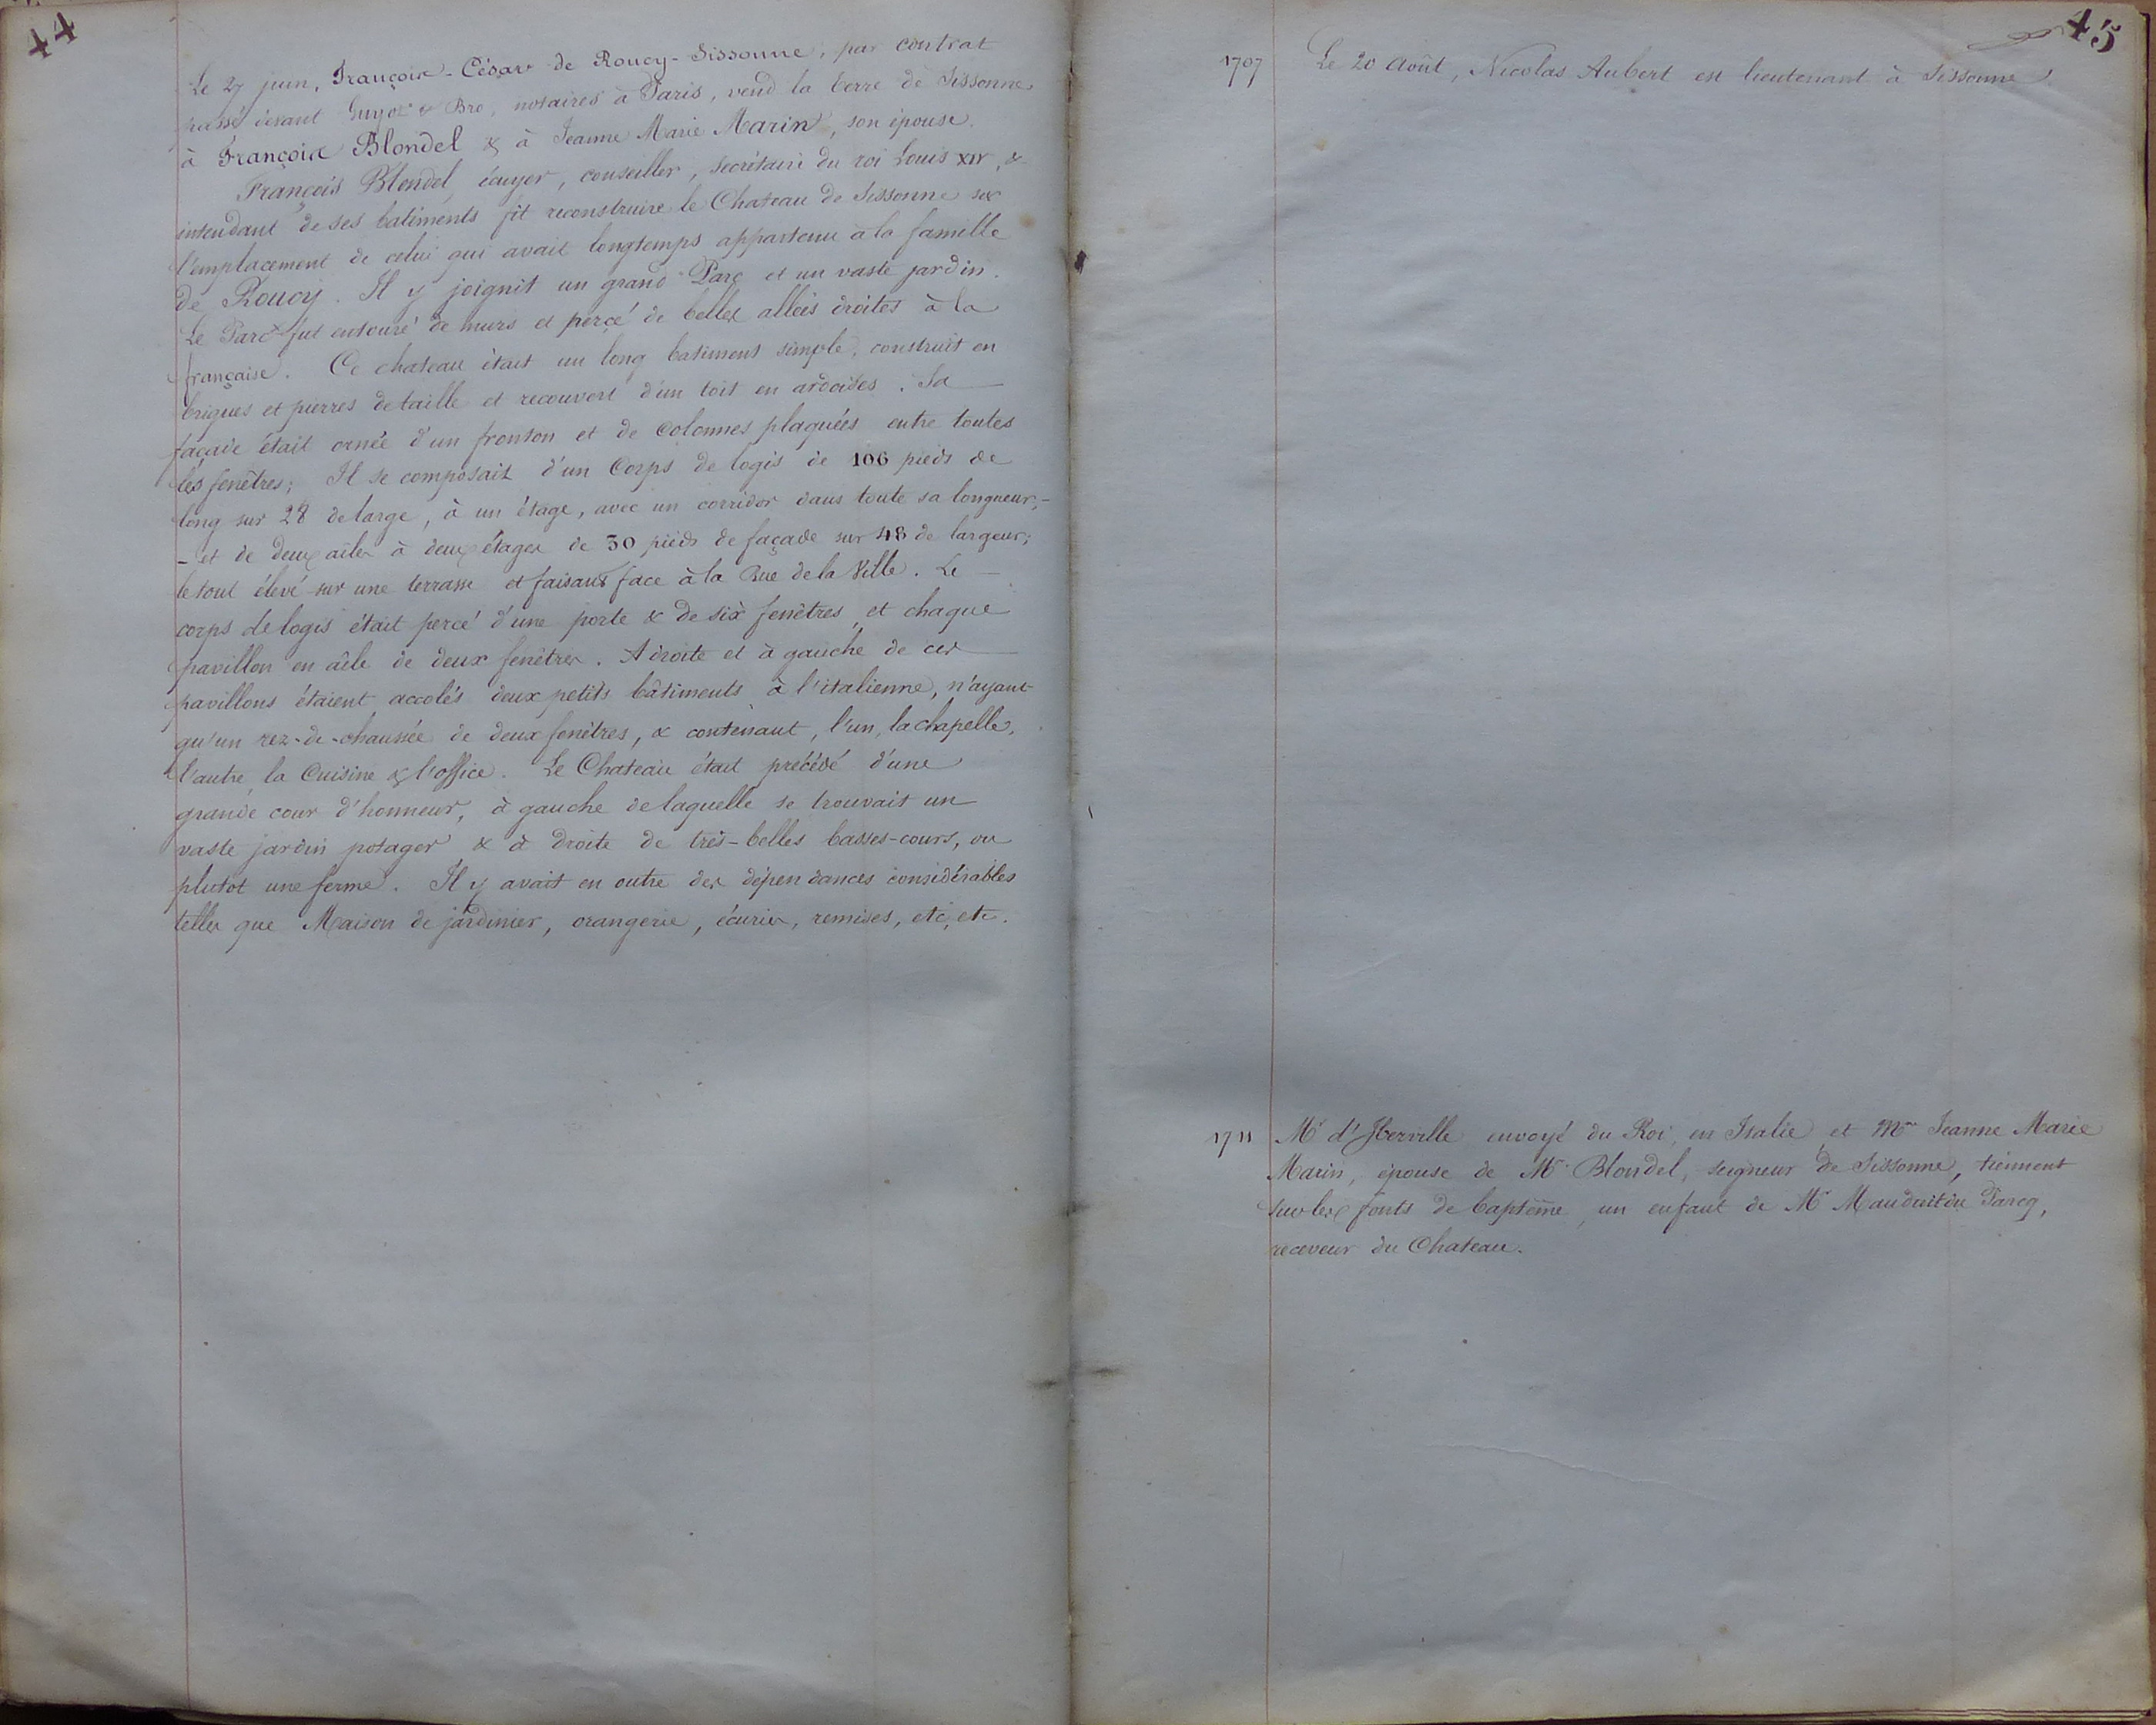 44
Le 27 juin, François-César de Roucy-Sissonne, par contrat
passé devant Guyot & Bro, notaires à Paris, vend la terre de Sissonne
à François Blondel & à Jeanne Marie Marin, son épouse.
François Blondel, écuyer, conseiller, secrétaire du roi Louis XIV, &
intendant de ses batiments fit reconstruire le Chateau de Sissonne sur
l'emplacement de celui qui avait longtemps appartenu à la famille
de Roucy. Il y joignit un grand Parc et un vaste jardin.
Le Parc fut entouré de murs et percé de belles allées droites à la
française. Ce chateau était un long batiment simple, construit en
briques et pierres de taille et recouvert d'un toit en ardoises. Sa
façade était ornée d'un fronton et de colonnes plaquées entre toutes
les fenêtres; Il se composait d'un Corps de logis de 106 pieds de
long sur 28 de large, à un étage, avec un corridor dans toute sa longueur,-
- et de deux aîles à deux étages de 30 pieds de façade sur 48 de largeur;
le tout élevé sur une terrasse et faisant face à la Rue de la Ville. Le
corps de logis était percé d'une porte & de six fenêtres, et chaque
pavillon en aîle de deux fenêtres. A droite et à gauche de ces
pavillons étaient accolés deux petits bâtiments à l'italienne, n'ayant
qu'un rez-de-chaussée de deux fenêtres, & contenant, l'un, la chapelle,
l'autre, la Cuisine & l'office. Le Chateau était précédé d'une
grande cour d'honneur, à gauche de laquelle se trouvait un
vaste jardin potager & à droite de très-belles basses-cours, ou
plutot une ferme. Il y avait en outre des dépendances considérables
telles que Maison de jardinier, orangerie, écuries, remises, etc, etc.
45
1707 Le 20 Août, Nicolas Aubert est lieutenant à Sissonne.
1711 Mr d'Iberville envoyé du Roi, en Italie et Mme Jeanne Marie
Marin, épouse de Mr Blondel, seigneur de Sissonne, tiennent
sur les fonts de baptême, un enfant de Mr Maudroit du Parcq,
receveur du Chateau.